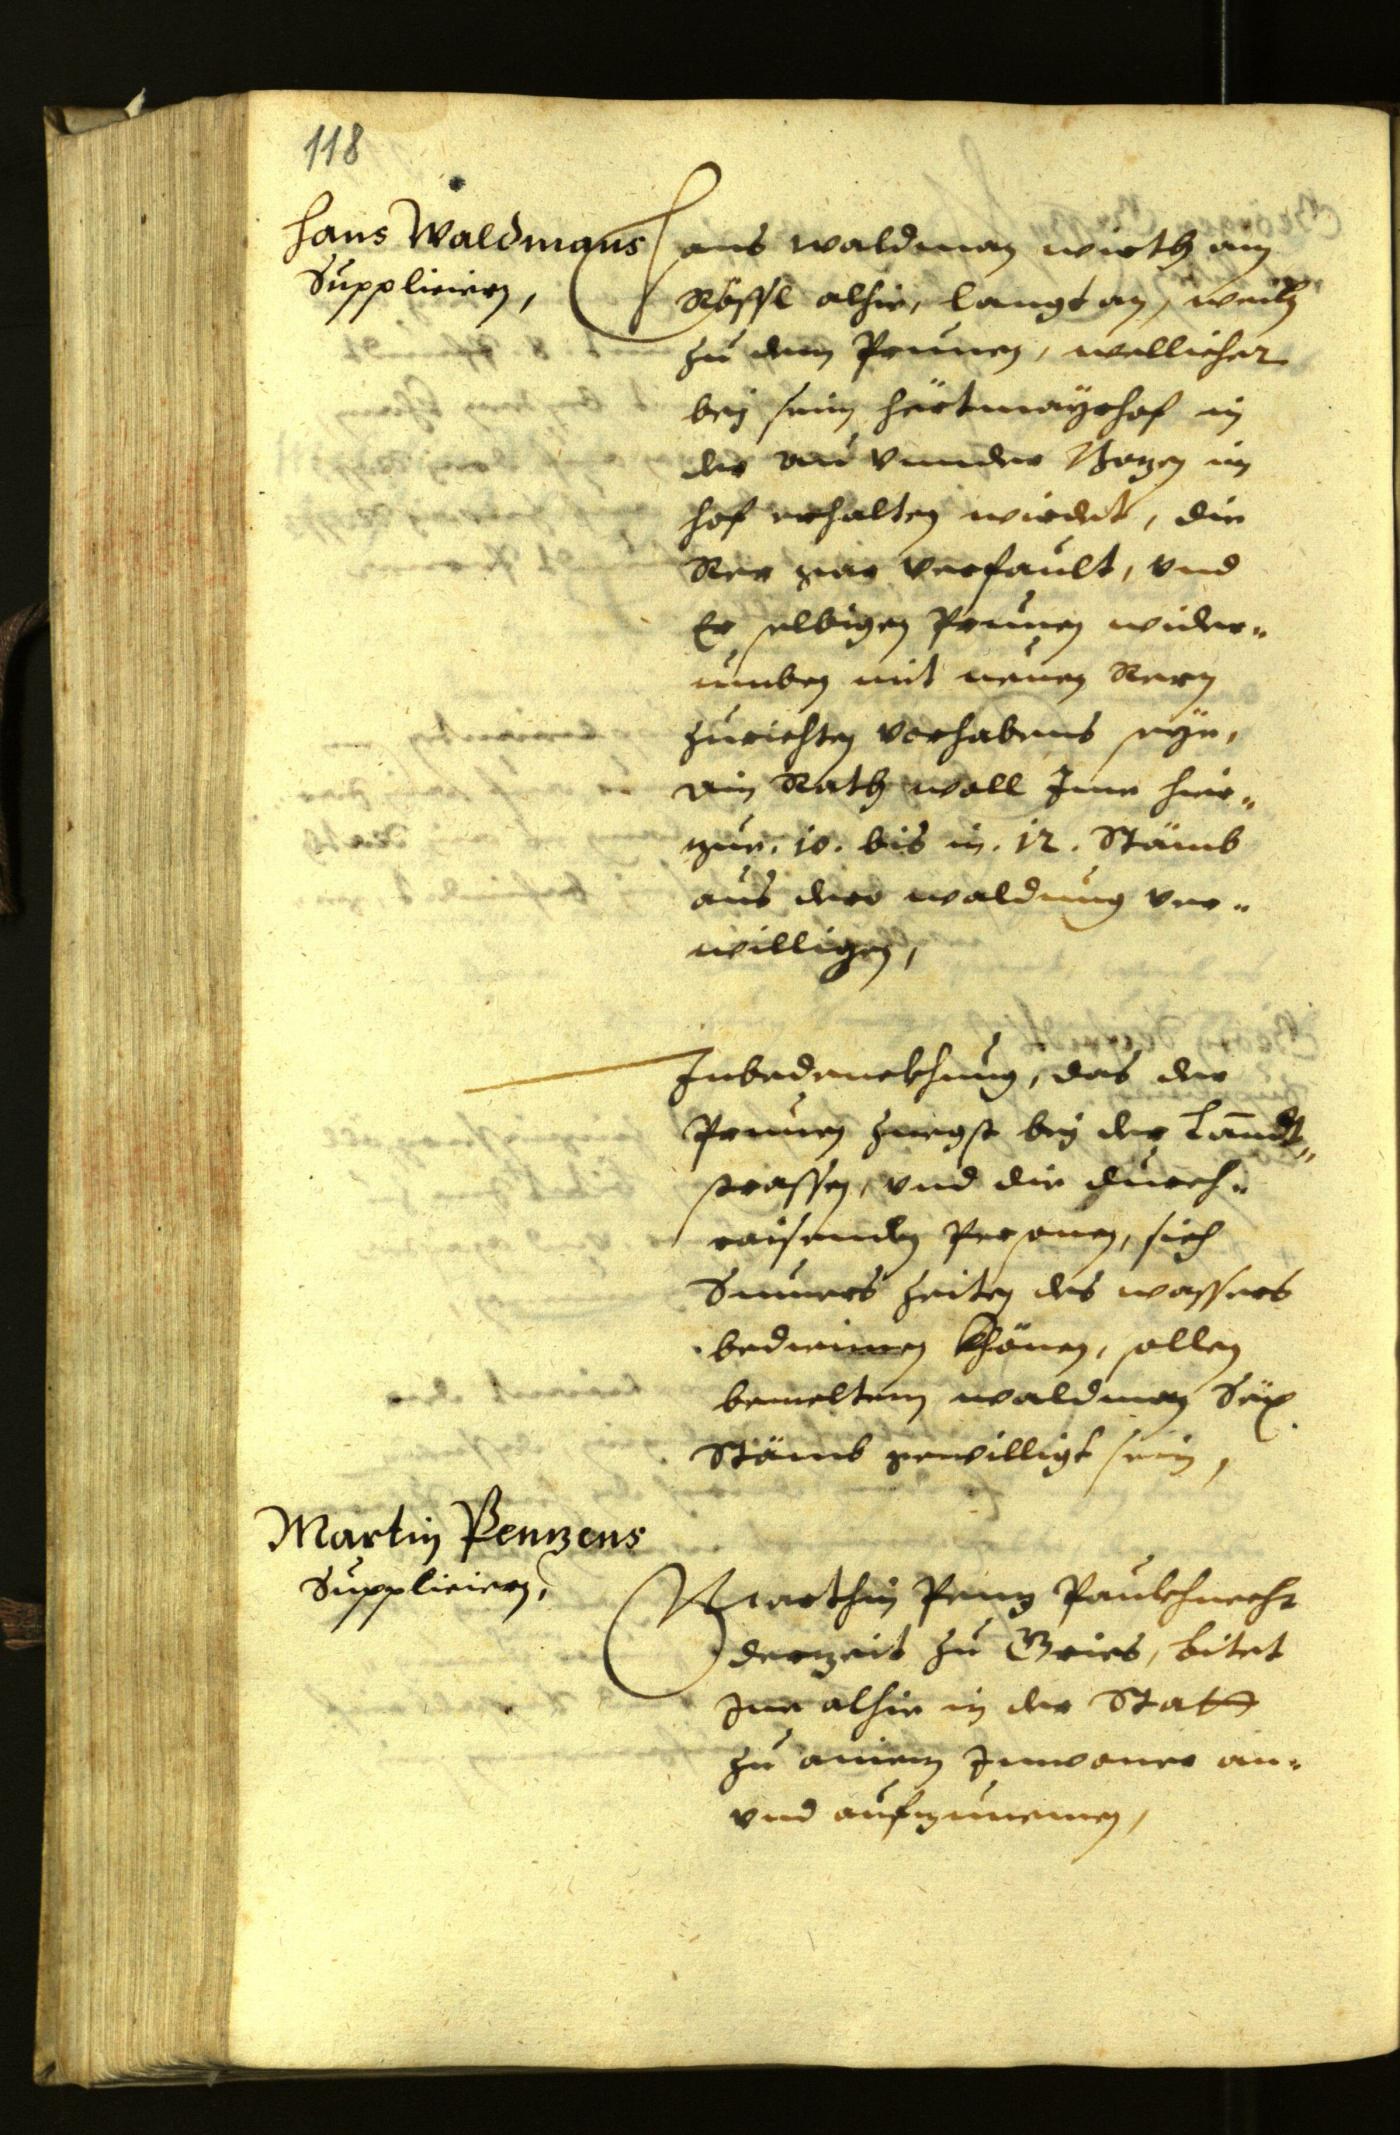 118
Hans Waldmans
Suppliciern,
Hans Waldman wirth am
Rössl alhie, langt an, weiln
zu dem Prunen, wellicher
bey seim härtmayrhof in
der au vnnder Bozen im
hof erhalten wierdet, die
Rer gar verfault, vnd
Er selbigen Prunen wider„
umben mit neuen Rern
zurichten vorhabens seye,
ain Rath woll Jme hier„
zue. 10. bis in. 12. Stämb
aus dero waldung ver„
willigen,
Inbedenckhung, das der
Prunen znegst bey der Lanndt„
strassen, vnd die durch„
raisenden Personen, sich
Sumers zeiten des wassers
bedienen khönen, sollen
bemeltem waldman Säx
Stämb gewilligt sein,
Martin Penzens
Suppliciern,
Marthin Penz Paukhnecht
derzeit zu Gries, bitet
Jne alhie in der Statt
zu ainem Jnwoner an„
vnd aufzunemen,